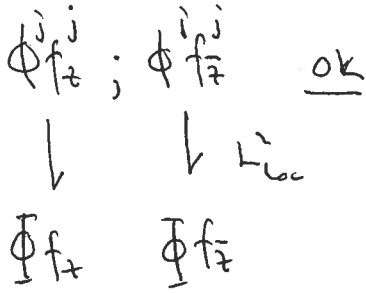 ϕ^j f^j_z ; ϕ^j f^j_z̄ OK
↓ ↓ L²_loc
Φ f_z Φ f_z̄